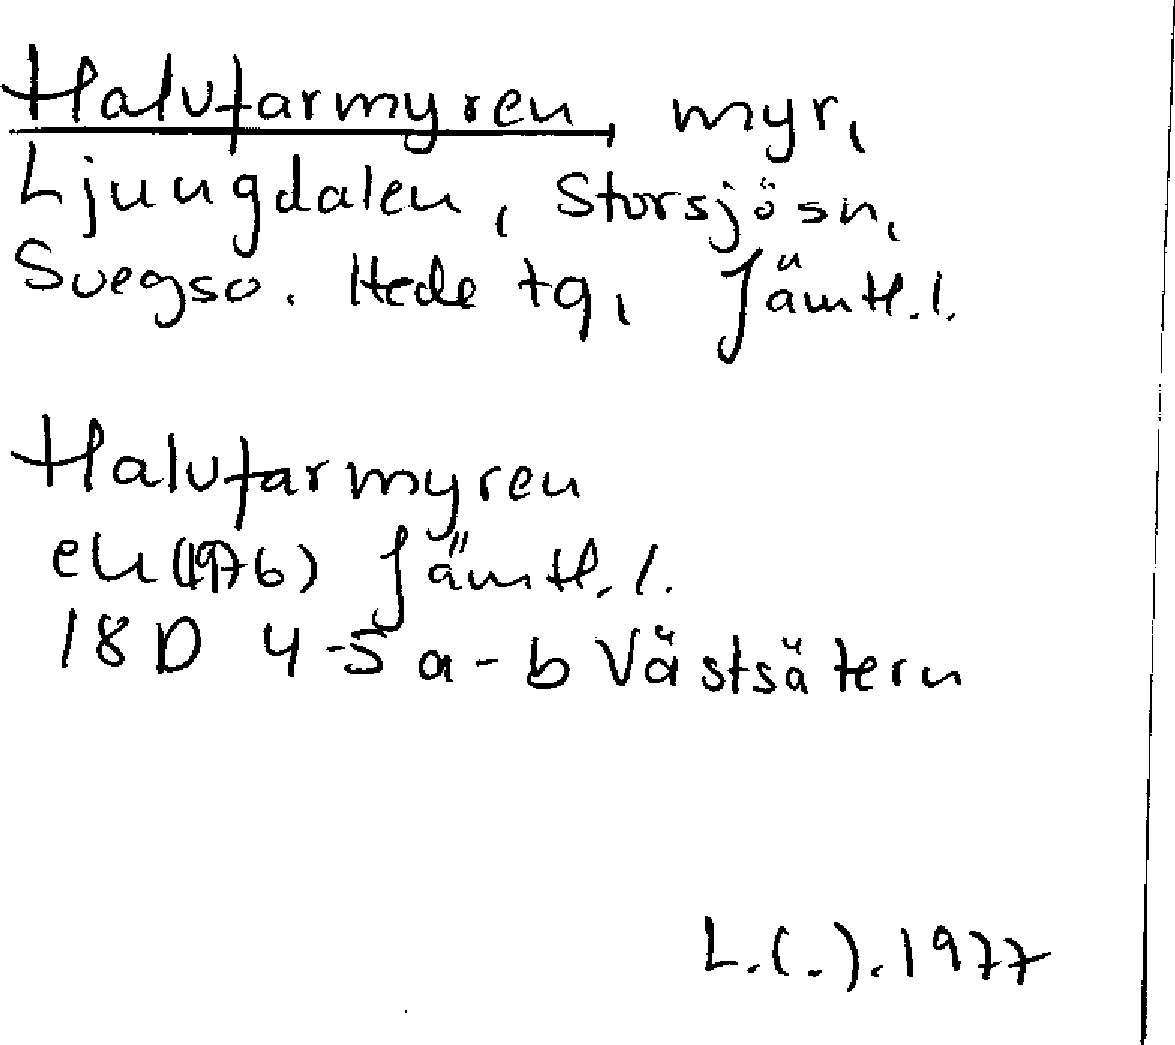 Halvfarmyren, myr,
Ljungdalen, Storsjösn,
Svegso. Hede tg, Jämtl.l.
Halvfarmyren
ek(1976) Jämtl.l.
18D 4-5 a-b Västsätern
L.(.).1977